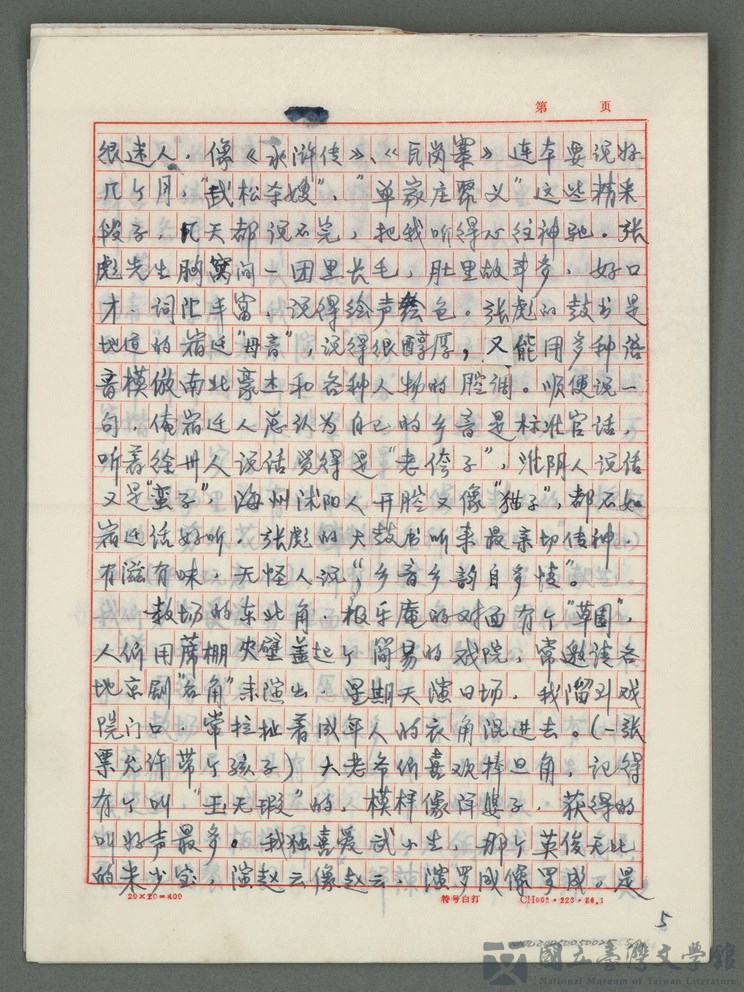 第 页
很迷人，像《水浒传》、《瓦岗寨》连本要说好
几个月，“武松杀嫂”、“单家庄聚义”这些精采
段子，几天都说不完，把我听得心往神驰。张
彪先生胸窝间一团黑长毛，肚里故事多，好口
才，词汇丰富，说得绘声绘色。张彪的鼓书是
地道的宿迁“母音”，说得很醇厚，又能用多种语
音模倣南北豪杰和各种人物的腔调。顺便说一
句，俺宿迁人总认为自己的乡音是标准官话，
听着徐州人说话觉得是“老侉子”，淮阴人说话
又是“蛮子”海州沭阳人开腔又像“猫子”，都不如
宿迁话好听，张彪的大鼓书听来最亲切传神，
有滋有味，无怪人说“乡音乡韵自多情”。
教场的东北角，极乐庵的对面有个“草园”，
人们用蓆棚夹壁盖起个简易的戏院，常邀请各
地京剧“名角”来演出，星期天演日场，我溜到戏
院门口，常拉扯着成年人的衣角混进去。(一张
票允许带个孩子)大老爷们喜欢捧旦角，记得
有个叫“王无瑕”的，模样像洋婆子，获得的
叫好声最多。我独喜爱武小生，那个英俊无比
的朱少宝，演赵云像赵云，演罗成像罗成。是
20×20=400 特号白打 CH002·223·86.1
5
國立臺灣文學館
National Museum of Taiwan Literature